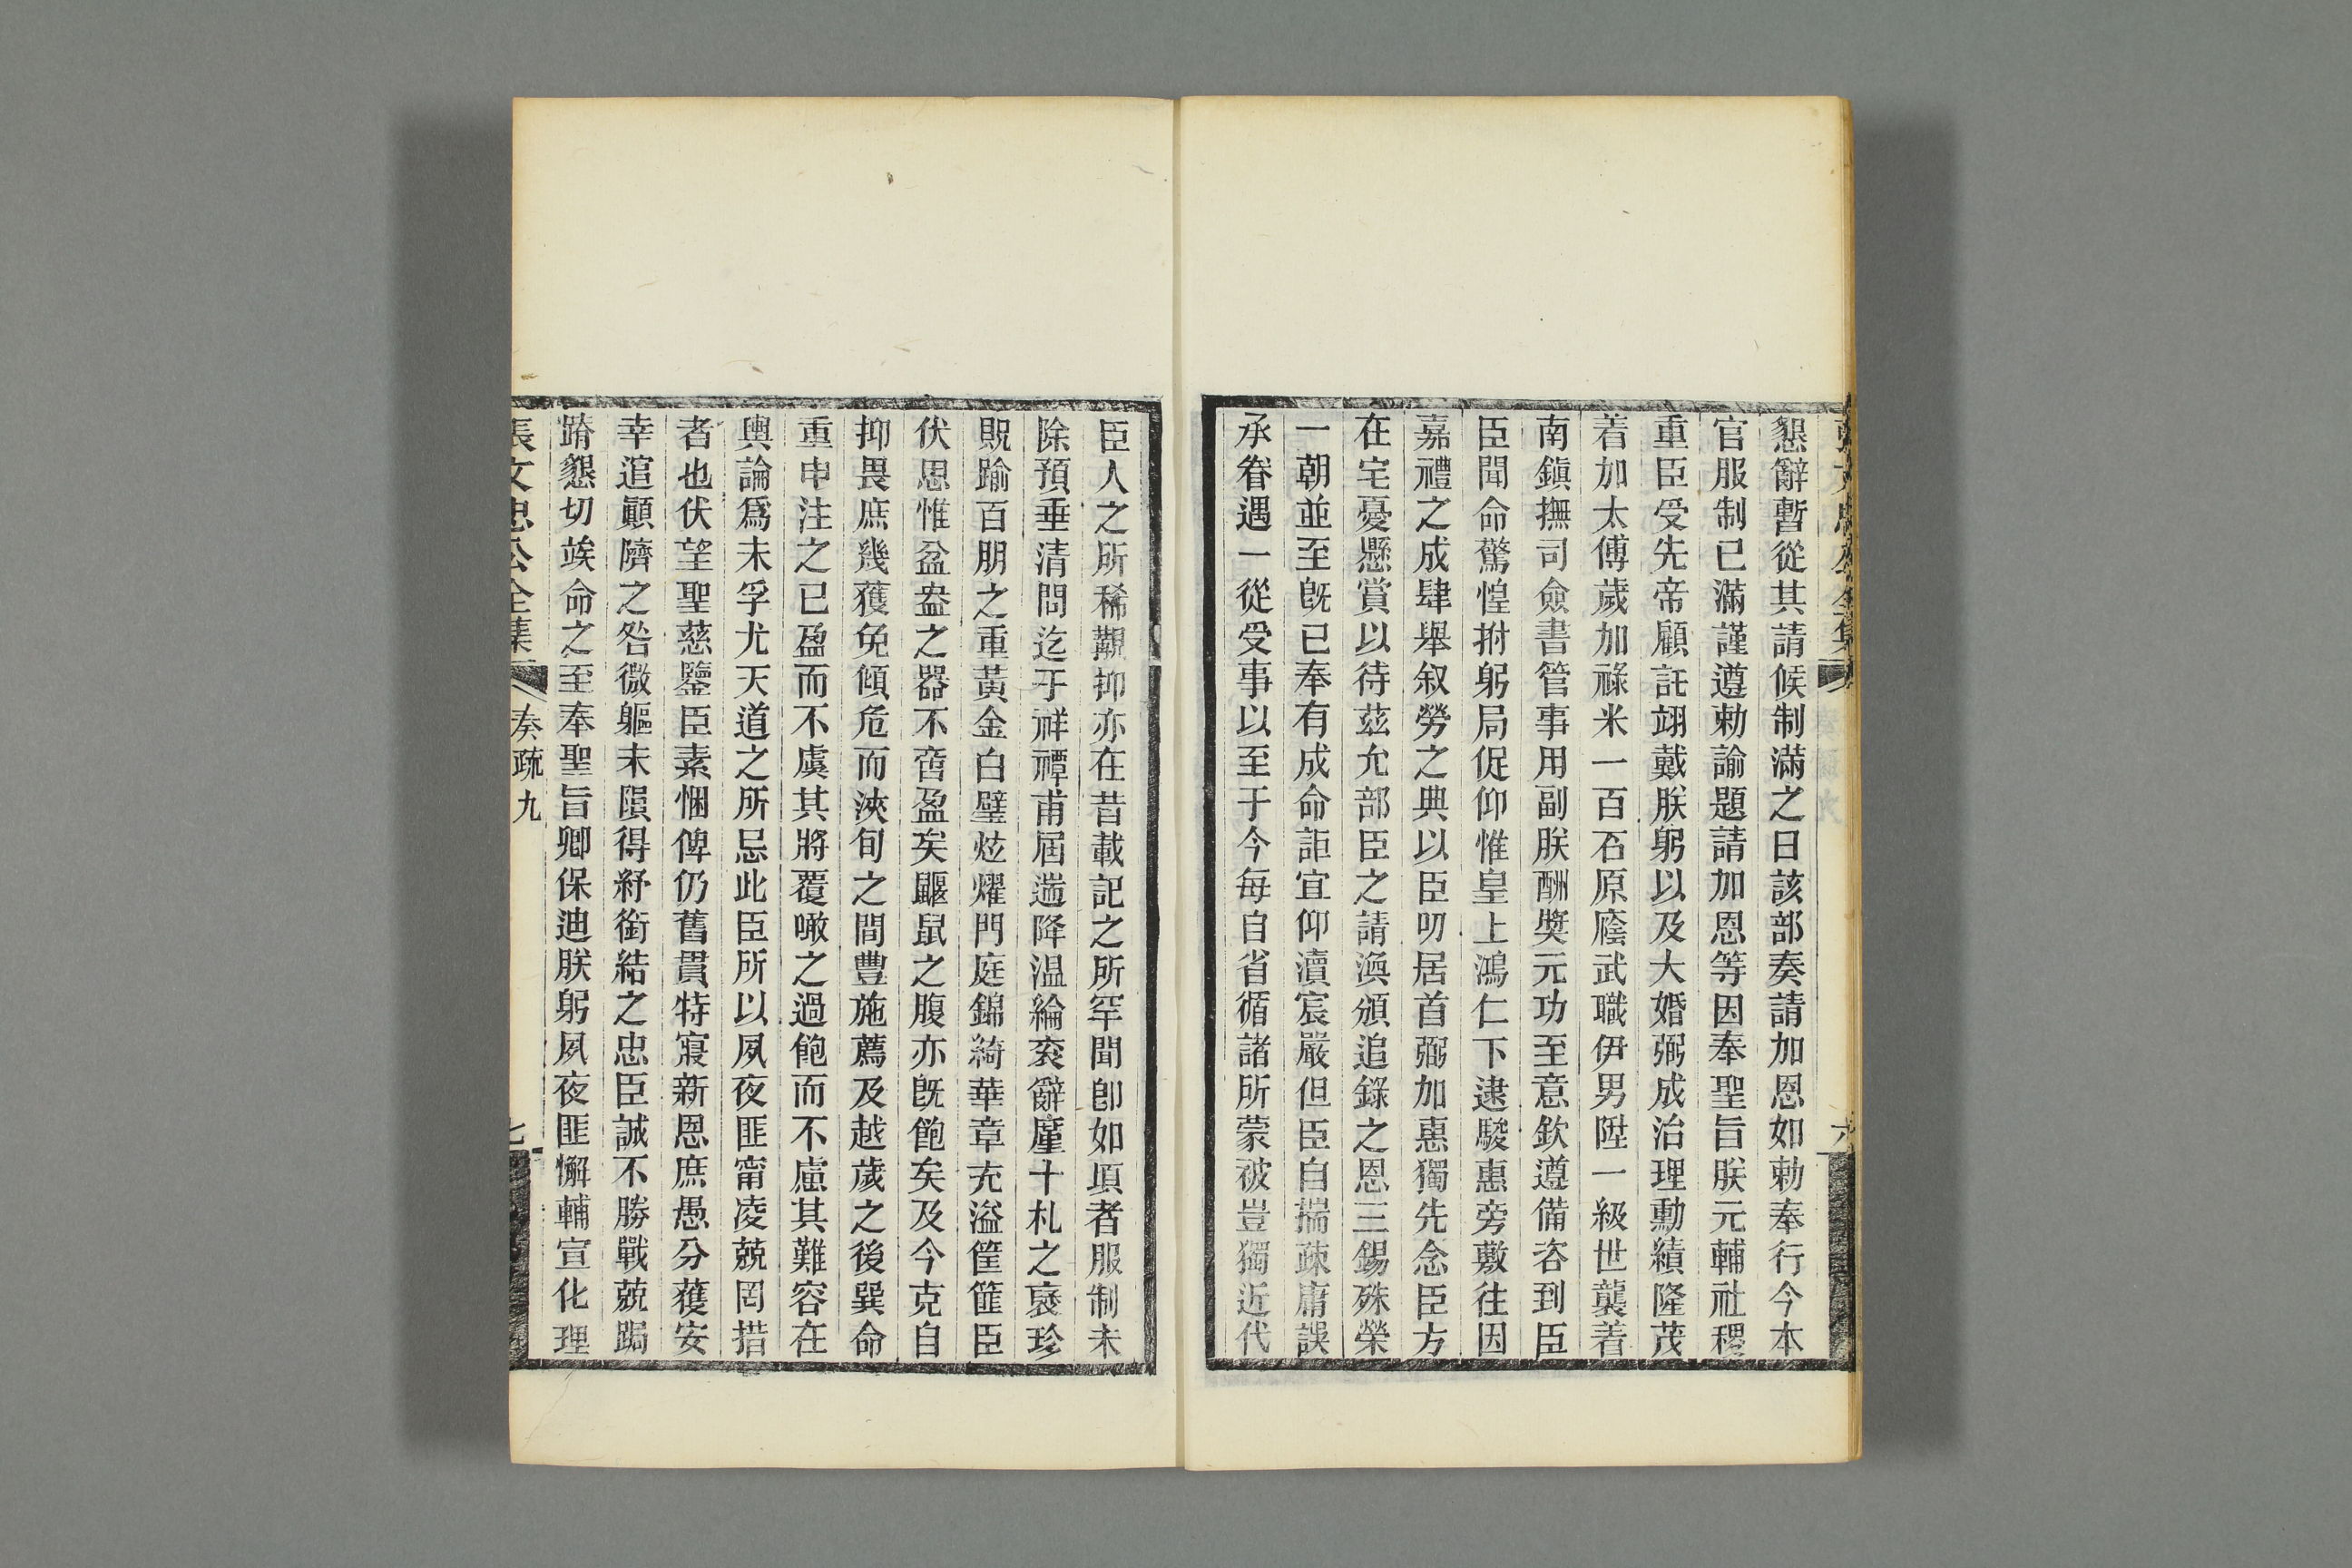 懇辭暫從其請候制滿之日該部奏請加恩如勅奉行今本
官服制已滿謹遵勅諭題請加恩等因奉聖旨朕元輔社稷
重臣受先帝顧託翊戴朕躬以及大婚弼成治理勳績隆茂
着加太傅歲加祿米一百石原廕武職伊男陞一級世襲着
南鎮撫司僉書管事用副朕酬奬元功至意欽遵備咨到臣
臣聞命驚惶拊躬局促仰惟皇上鴻仁下逮駿惠旁敷往因
嘉禮之成肆舉叙勞之典以臣叨居首弼加惠獨先念臣方
在宅憂懸賞以待茲允部臣之請渙頒追錄之恩三錫殊榮
一朝並至旣已奉有成命詎宜仰瀆宸嚴但臣自揣疎庸誤
承眷遇一從受事以至于今每自省循諸所蒙被豈獨近代
臣人之所稀覯抑亦在昔載記之所罕聞卽如項者服制未
除預垂清問迄于祥禫甫屆遄降温綸衮辭廑十札之褒珍
貺踰百朋之重黃金白璧炫燿門庭錦綺華章充溢筐篚臣
伏思惟盆盎之器不啻盈矣鼴鼠之腹亦旣飽矣及今克自
抑畏庶幾獲免傾危而浹旬之間豐施薦及越歲之後巽命
重申注之已盈而不虞其將覆噉之過飽而不慮其難容在
輿論爲未孚尤天道之所忌此臣所以夙夜匪甯凌兢罔措
者也伏望聖慈鑒臣素悃俾仍舊貫特寢新恩庶愚分獲安
幸逭顚隮之咎微軀未隕得紓銜結之忠臣誠不勝戰兢跼
蹐懇切竢命之至奉聖旨卿保迪朕躬夙夜匪懈輔宣化理
張文忠公全集
奏疏九
七